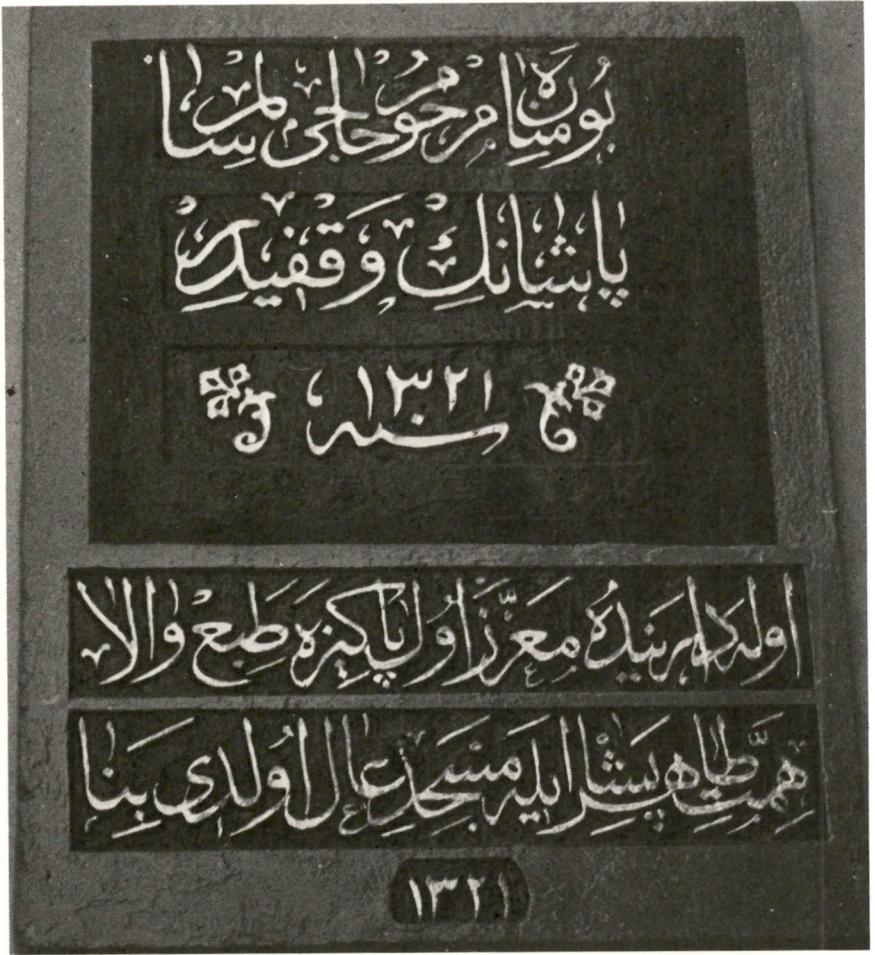 بو مناره مرحوم حاجی سالم
پاشانك وقفیدر
سنه ١٣٢١
اوله دارینده معزز اول پاكیزه طبع والا
همت طاهر پشا ایله مسجد عال اولدی بنا
١٣٢١